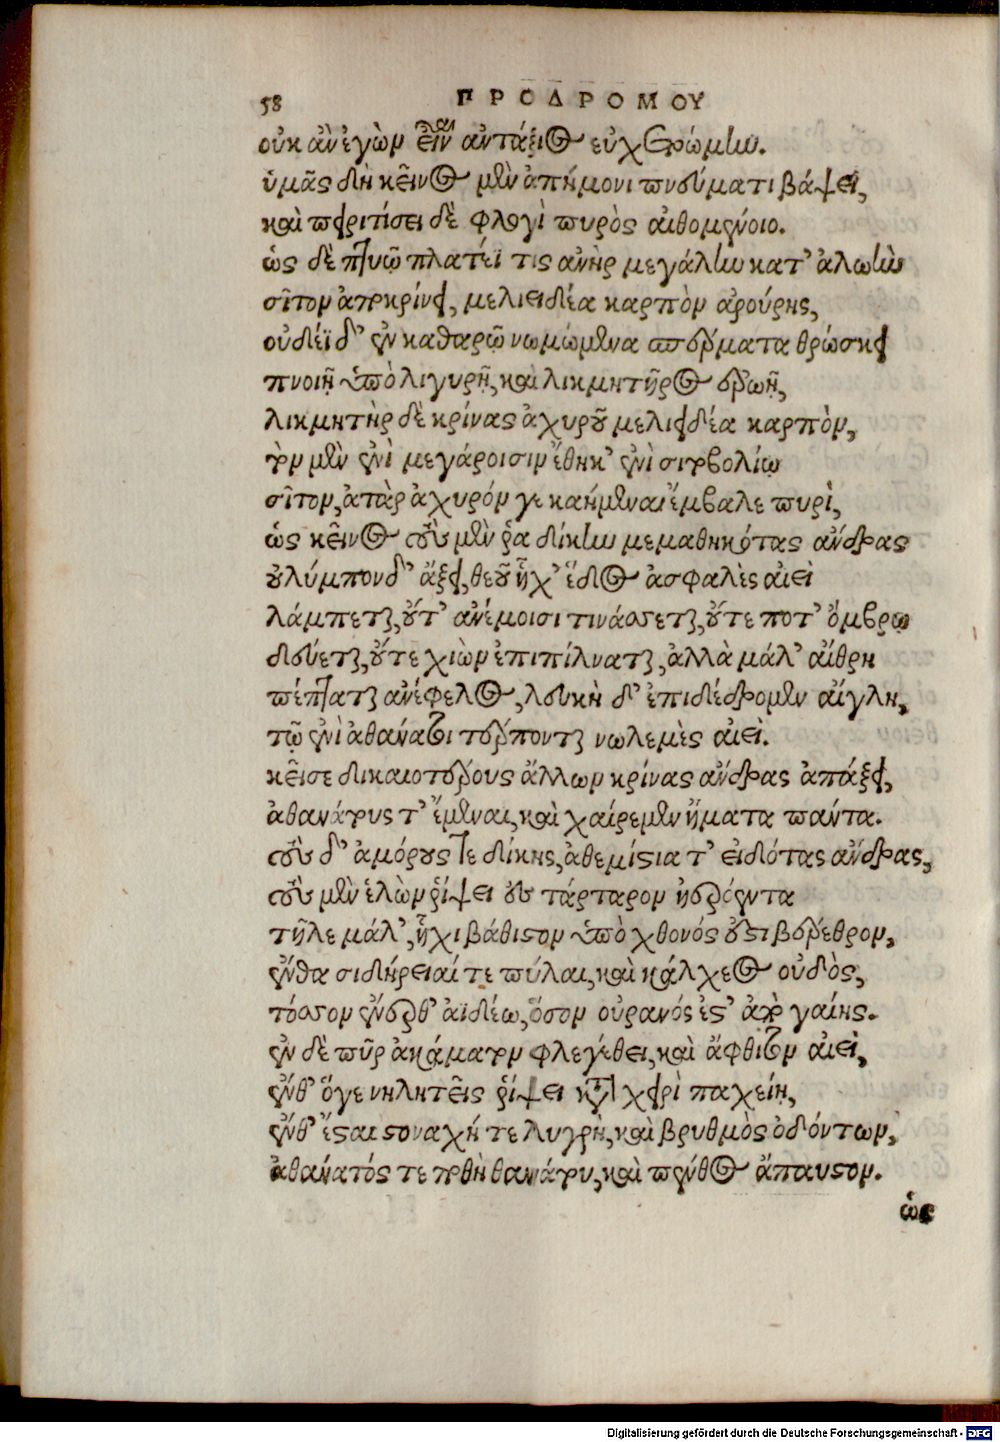 58 ΠΡΟΔΡΟΜΟΥ
οὐκ ἂν ἐγὼν εἴην ἀντάξιος εὐχετοῴμην.
ὑμᾶς δὴ κεῖνος μὲν ἀπήμονι πνεύματι βάψει,
καὶ περιτίσει δὲ φλογὶ πυρὸς αἰθομένοιο.
ὡς δὲ πτυῷ πλατέϊ τις ἀνὴρ μεγάλην κατ' ἀλωὴν
σῖτον ἀποκρίνει, μελιειδέα καρπὸν ἀρούρης,
οὐδέϊ δ' ἐν καθαρῷ νωμώμενα σπέρματα θρώσκει
πνοιῇ ὑπὸ λιγυρῇ, καὶ λικμητῆρος ἐρωῇ,
λικμητὴρ δὲ κρίνας ἀχυροῦ μελιειδέα καρπὸν,
τὸν μὲν ἐνὶ μεγάροισιν ἔθηκ' ἐνὶ σιτοβολίῳ
σῖτον, ἀτὰρ ἀχυρόν γε καήμεναι ἔμβαλε πυρὶ,
ὡς κεῖνος τοὺς μὲν ῥα δίκην μεμαθηκότας ἄνδρας
οὐλύμπονδ' ἄξει, θεοῦ ᾗχ' ἕδος ἀσφαλὲς αἰεὶ
λάμπεται, οὔτ' ἀνέμοισι τινάσσεται, οὔτε ποτ' ὄμβρῳ
δεύεται, οὔτε χιὼν ἐπιπίλναται, ἀλλὰ μάλ' αἴθρη
πέπταται ἀνέφελος, λευκὴ δ' ἐπιδέδρομεν αἴγλη,
τῷ ἐνὶ ἀθάνατοι τέρπονται νωλεμὲς αἰεὶ.
κεῖσε δικαιοτέρους ἄλλων κρίνας ἄνδρας ἀπάξει,
ἀθανάτους τ' ἔμεναι, καὶ χαίρεμεν ἤματα πάντα.
τοὺς δ' ἀμόρους τε δίκης, ἀθεμίστια τ' εἰδότας ἄνδρας,
τοὺς μὲν ἑλὼν ῥίψει ἐς τάρταρον ἠερόεντα
τῆλε μάλ', ἧχι βάθιστον ὑπὸ χθονός ἐστι βέρεθρον,
ἔνθα σιδήρειαί τε πύλαι, καὶ χάλκεος οὐδὸς,
τόσσον ἔνερθ' ἀϊδέω, ὅσον οὐρανός ἐστ' ἀπὸ γαίης.
ἐν δὲ πῦρ ἀκάματον φλεγέθει, καὶ ἄφθιτον αἰεὶ,
ἔνθ' ὅγε νηλητεῖς ῥίψει κατὰ χειρὶ παχείῃ,
ἔνθ' ἔσαι στοναχή τε λυγρὴ, καὶ βρυθμὸς ὀδόντων,
ἀθάνατός τε ποθὴ θανάτου, καὶ πένθος ἄπαυστον.
ὡς
Digitalisierung gefördert durch die Deutsche Forschungsgemeinschaft - DFG